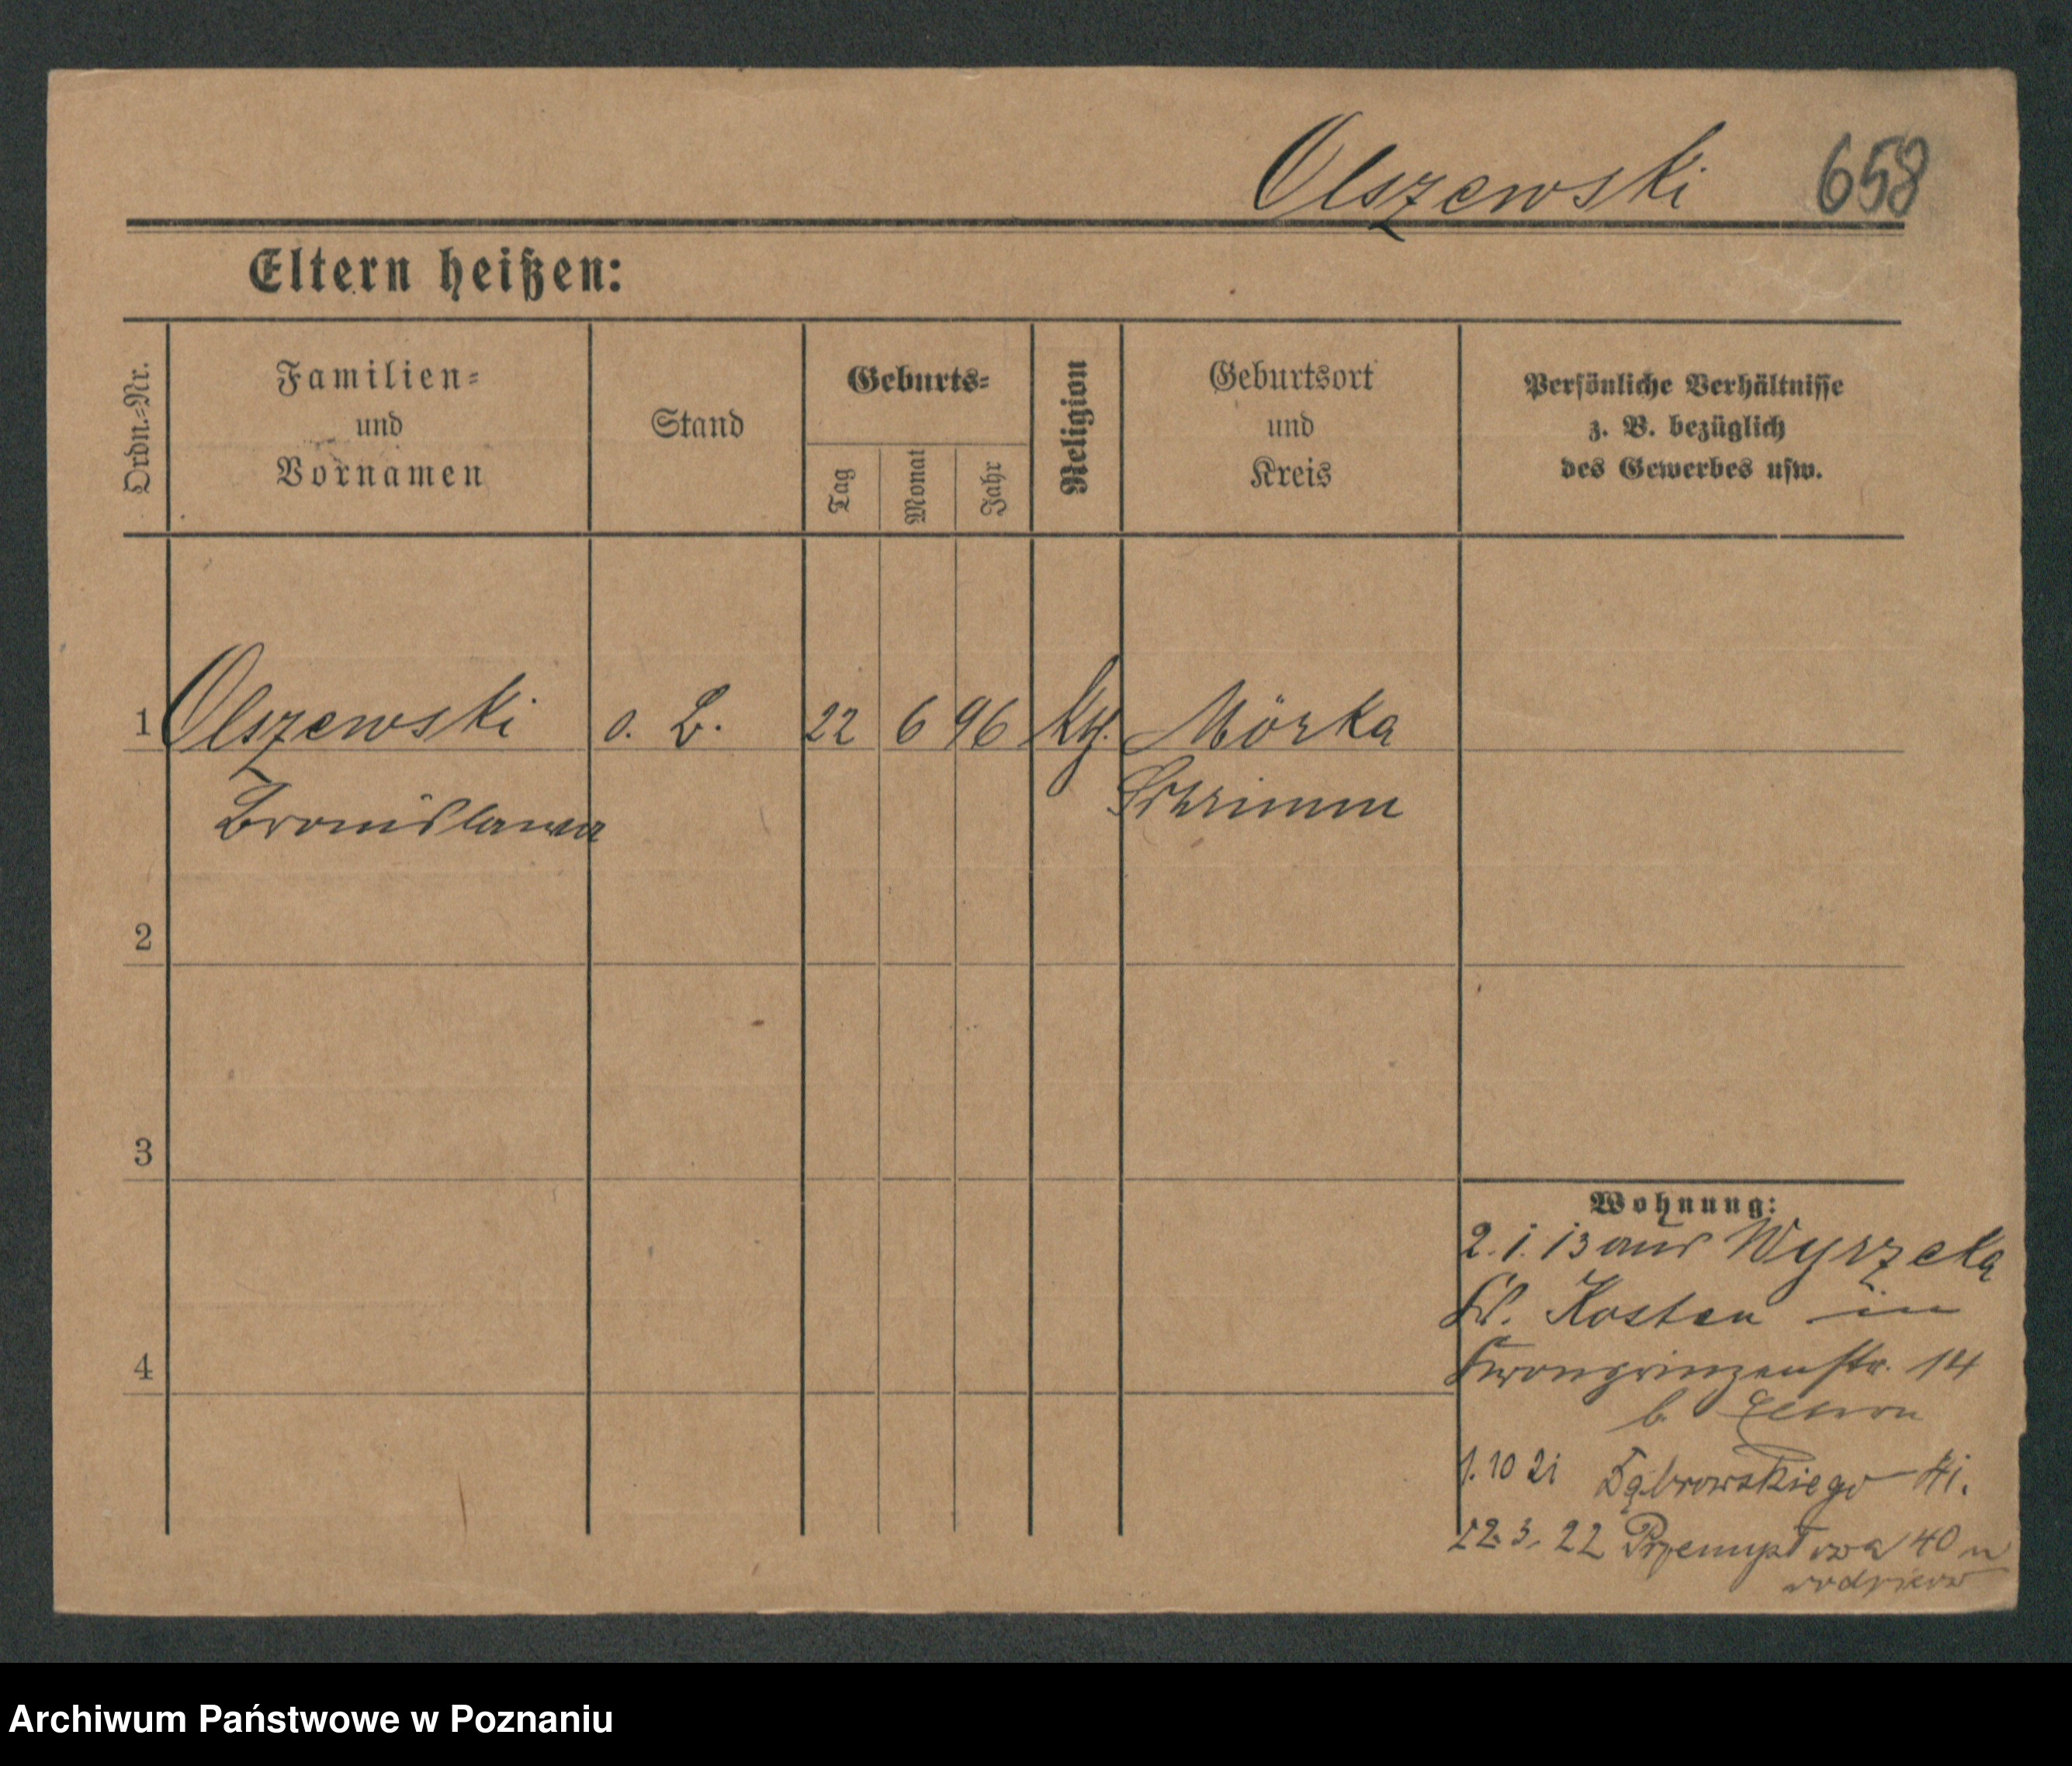 Olszewski 658
Eltern heißen:
Ordn.-Nr.
Familien-
und
Vornamen
Stand
Geburts-
Tag
Monat
Jahr
Religion
Geburtsort
und
Kreis
Persönliche Verhältnisse
z. B. bezüglich
des Gewerbes usw.
1 Olszewski o. B. 22 6 96 Mörka
Bronislawa Schrimm
2
3
4
Wohnung:
2. 1. 13 aus Wyrzeka
Kr. Kosten in
Kronprinzenstr. 14
b. Eltern
1. 10 21 Dąbrowskiego 41.
22. 3. 22 Przemysłowa 40 u
rodziców
Archiwum Państwowe w Poznaniu